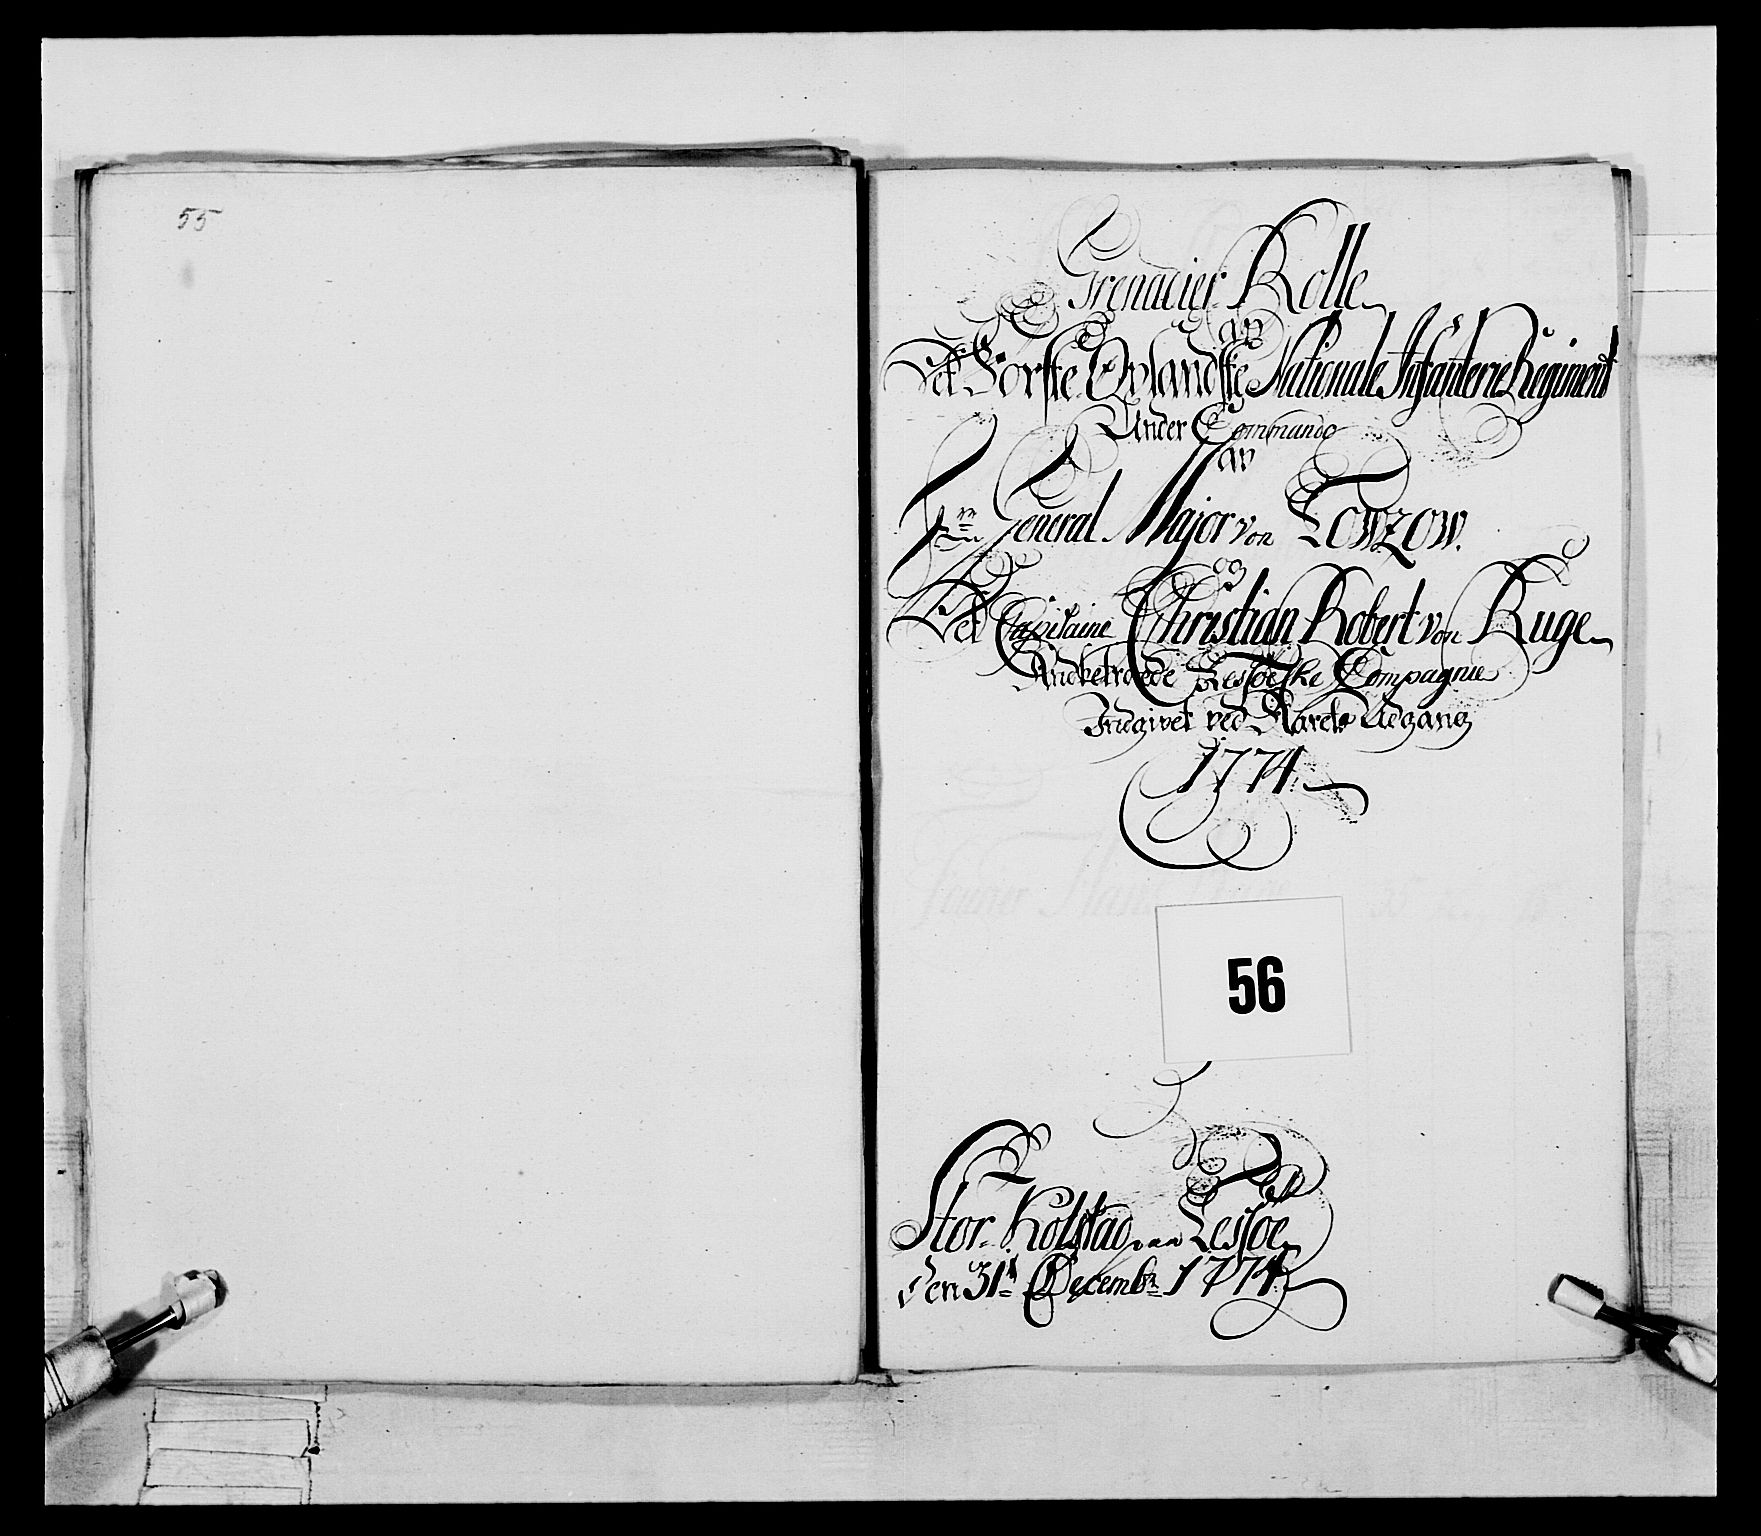 55
Grenadier Rolle
av
Det Förste Oplandske Nationale Infanterie Regiment
Under Commando
av
Hr General Major von Lowzow.
og
Det Capitaine Christian Robert von Kuge
Andbetroede Lessöeske Compagnie
Indgivet ved Aarets Udgang
1774.
56
Stor Kolstad paa Lessöe
den 31te Decembr 1774.